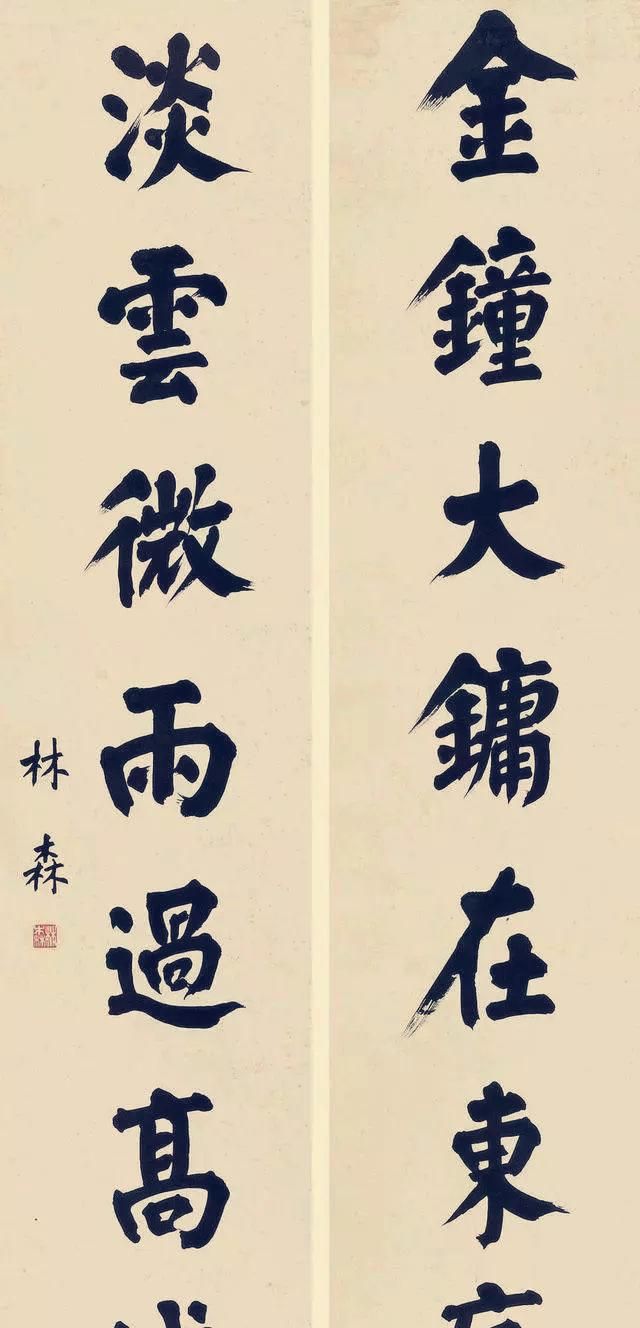 金鐘大鏞在東
淡雲微雨過高
林森